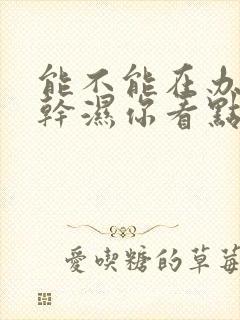 能不能在办
幹濕你看點
愛喫糖的草莓